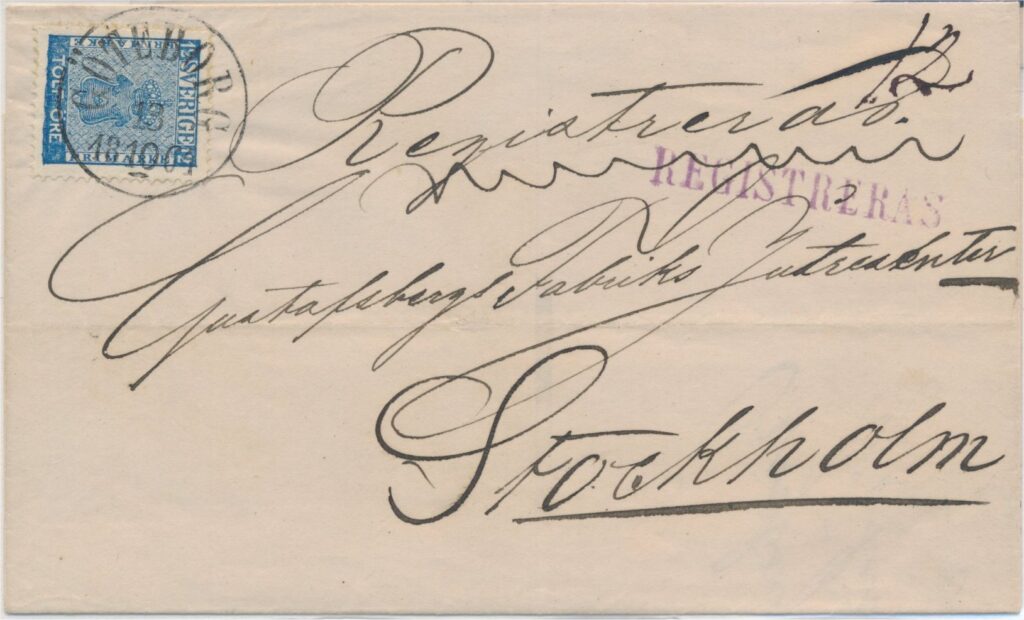 SVERIGE
TOLF ÖRE
FRIMÄRKE
12
GÖTEBORG
13
10
Registreras.
REGISTRERAS
Gustafsbergs Fabriks Intressenter
Stockholm